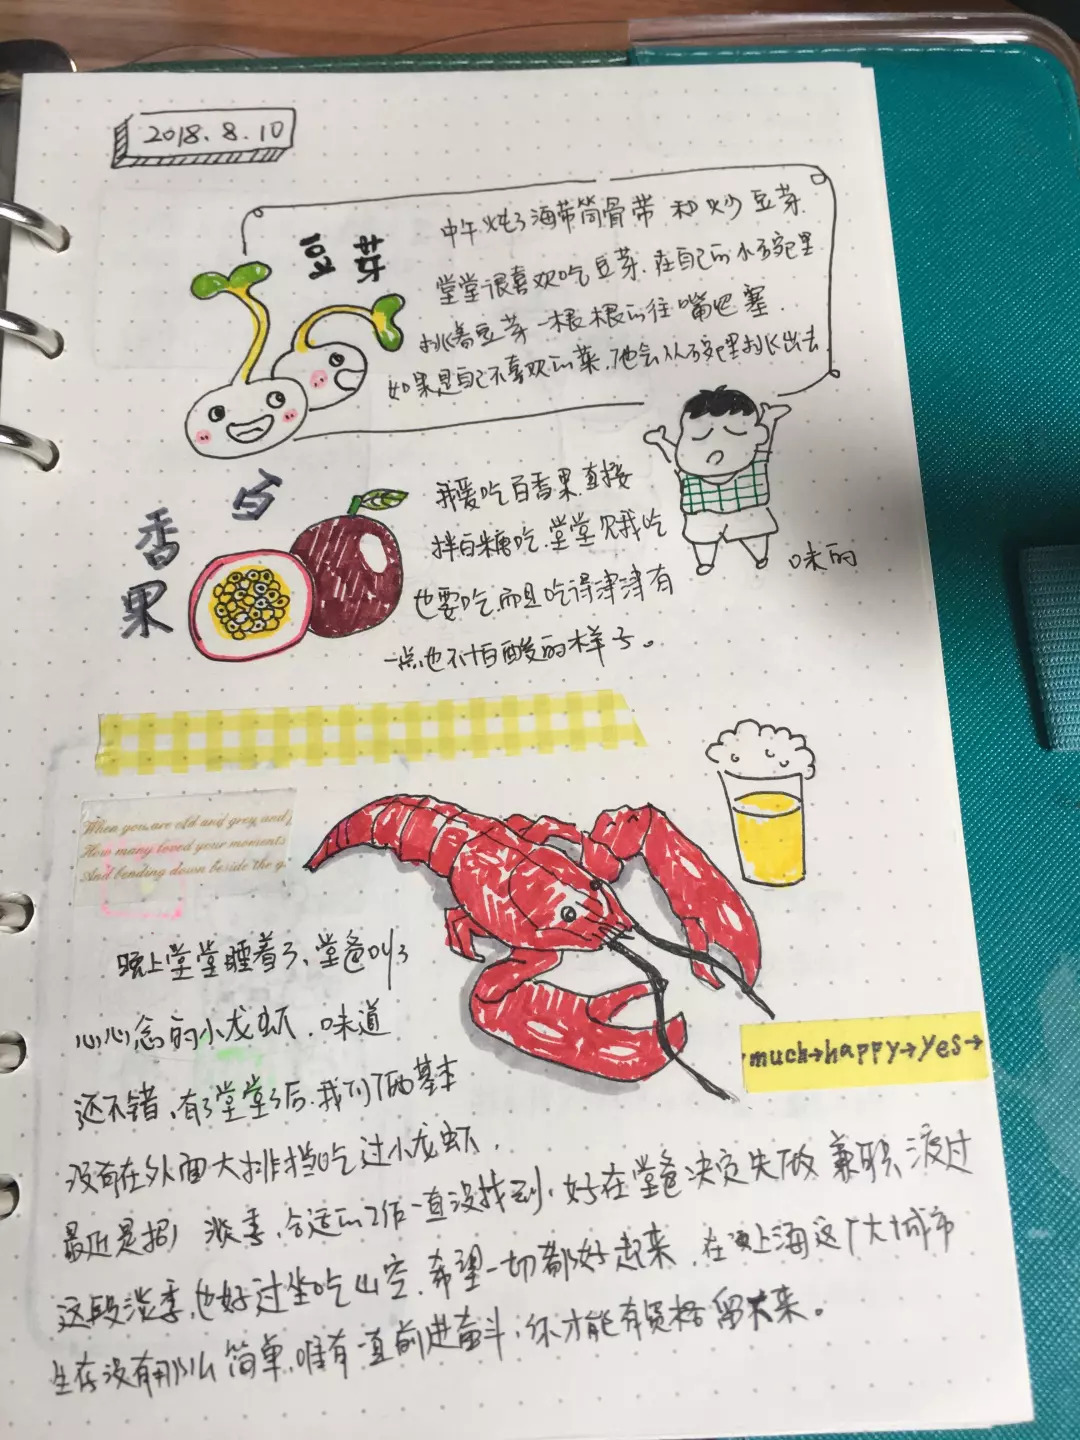 2018.8.10
豆芽
中午炖了海带筒骨带和炒豆芽.
堂堂很喜欢吃豆芽.在自己的小碗里
挑着豆芽一根根的往嘴巴塞.
如果是自己不喜欢的菜.他会从碗里挑出去.
百香果
我爱吃百香果.直接
拌白糖吃.堂堂见我吃
也要吃.而且吃得津津有
味的
一点也不怕酸的样子。
When you are old and grey and
How many loved your moments
And bending down beside the g
晚上堂堂睡着了、堂爸叫了
心心念的小龙虾.味道
还不错.有了堂堂了后.我们俩基本
没有在外面大排档吃过小龙虾.
much→happy→yes→
最近是招 淡季、合适的工作一直没找到、好在堂爸决定先做兼职渡过
这段淡季.也好过坐吃山空.希望一切都好起来.在上海这个大城市
生存没有那么简单.唯有一直前进奋斗;你才能有资格留下来。